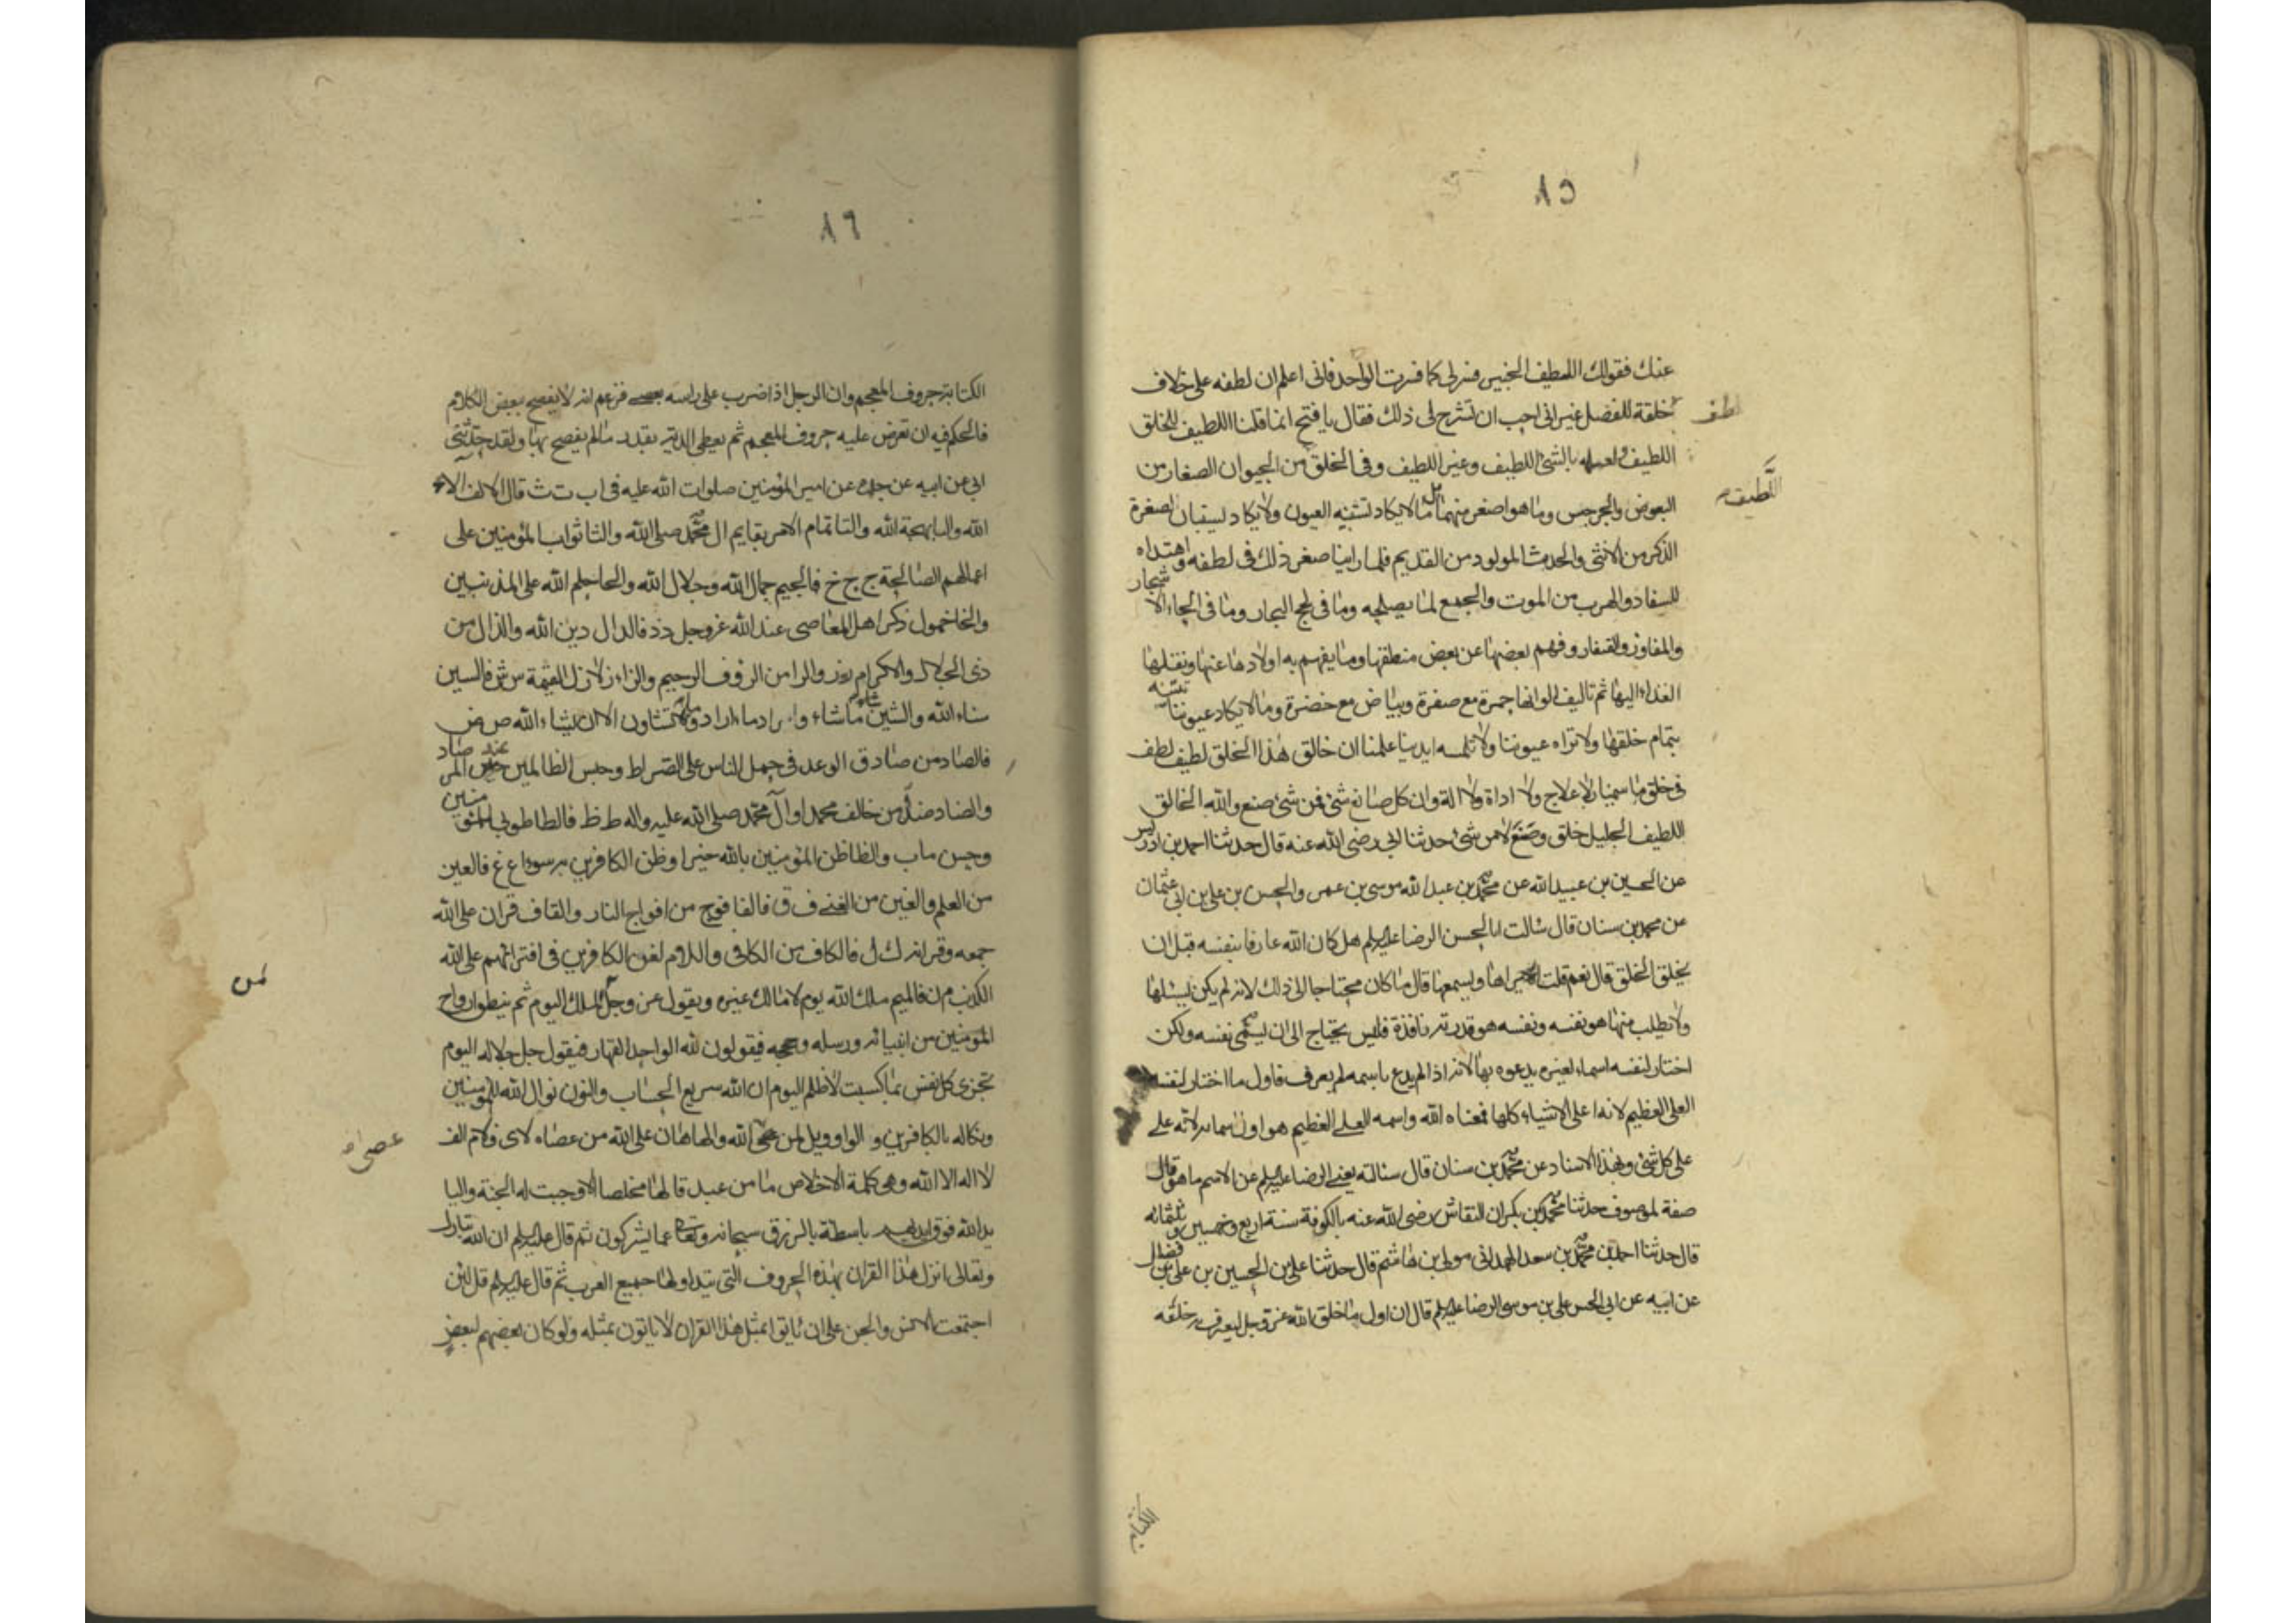 ٨٥
عنك فقولك اللطيف الخبير فسره لى كما فسرت الواحد فانى اعلم ان لطفه على خلاف
لطف
خلقه للفصل غير انى احب ان تشرح لى ذلك فقال يا فتح انما قلنا اللطيف للخلق
اللطيف ولعلمه بالشئ اللطيف وغير اللطيف وفى الخلق من الحيوان الصغار من
اللطيف
البعوض والجرجس وما هو اصغر منهما ما لا يكاد تستبينه العيون ولا يكاد يستبان لصغره
الذكر من الانثى والحدث المولود من القديم فلما راينا صغر ذلك فى لطفه واهتداه
للسفاد والهرب من الموت والجمع لما يصلحه وما فى لجج البحار وما فى لحاء الاشجار
والمفاوز والقفار وفهم بعضها عن بعض منطقها وما يفهم به اولادها عنها ونقلها
الغذاء اليها ثم تاليف الوانها حمرة مع صفرة وبياض مع خضرة وما لا يكاد عيوننا تستبينه
بتمام خلقها ولا تراه عيوننا ولا تلمسه ايدينا علمنا ان خالق هذا الخلق لطيف لطف
فى خلق ما سمينا بلا علاج ولا اداة ولا الة وان كل صانع شئ فمن شئ صنع والله الخالق
اللطيف الجليل خلق وصنع لا من شئ حدثنا ابى رضى الله عنه قال حدثنا احمد بن ادريس
عن الحسين بن عبيد الله عن محمد بن عبد الله وموسى بن عمر والحسن بن على بن ابى عثمان
عن محمد بن سنان قال سالت ابا الحسن الرضا عليه السلم هل كان الله عارفا بنفسه قبل ان
يخلق الخلق قال نعم قلت يراها ويسمعها قال ما كان محتاجا الى ذلك لانه لم يكن يسئلها
ولا يطلب منها هو نفسه ونفسه هو قدرته نافذة فليس يحتاج الى ان يسمى نفسه ولكن
اختار لنفسه اسماء لغيره يدعوه بها لانه اذا لم يدع باسمه لم يعرف فاول ما اختار لنفسه
العلى العظيم لانه اعلى الاشياء كلها فمعناه الله واسمه العلى العظيم هو اول اسمائه لانه على
على كل شئ وبهذا الاسناد عن محمد بن سنان قال سالته يعنى الرضا عليه السلم عن الاسم ما هو قال
صفة لموصوف حدثنا محمد بن بكران النقاش رضى الله عنه بالكوفة سنة اربع وخمسين وثلثمائه
قال حدثنا احمد بن محمد بن سعد الهمدانى مولى بن هاشم قال حدثنا على بن الحسين بن على بن فضال
عن ابيه عن ابى الحسن على بن موسى الرضا عليه السلم قال ان اول ما خلق الله عز وجل ليعرف به خلقه
الكتابة
٨٦
الكتابة حروف المعجم وان الرجل اذا ضرب على راسه بعصى فزعم انه لا يفصح ببعض الكلام
فالحكم فيه ان تعرض عليه حروف المعجم ثم يعطى الدية بقدر ما لم يفصح بها ولقد حدثنى
ابى عن ابيه عن جده عن امير المؤمنين صلوات الله عليه فى اب ت ث قال الالف آلاء
الله والبا بهجة الله والتا تمام الامر بقايم ال محمد صلى الله والثا ثواب المؤمنين على
اعمالهم الصالحة ج ح خ فالجيم جمال الله وجلال الله والحا حلم الله على المذنبين
والخا خمول ذكر اهل المعاصى عند الله عز وجل د ذ فالدال دين الله والذال من
ذى الجلال والاكرام ر ز والرا من الرؤف الرحيم والزاء زلازل القيمة س ش فالسين
سناء الله والشين شاء ما شاء واراد ما اراد وما تشاون الا ان يشاء الله ص ض
فالصاد من صادق الوعد فى حمل الناس على الصراط وحبس الظالمين عند المرصاد
والضاد ضل من خالف محمدا وآل محمد صلى الله عليه واله ط ظ فالطا طوبى للمؤمنين
وحسن ماب والظا ظن المؤمنين بالله خيرا وظن الكافرين به سوءا ع غ فالعين
من العلم والغين من الغنى ف ق فالفا فوج من افواج النار والقاف قران على الله
جمعه وقرانه ك ل فالكاف من الكافى واللام لغو الكافرين فى افترائهم على الله
الكذب م ن فالميم ملك الله يوم لا مالك غيره ويقول عز وجل لمن الملك اليوم ثم ينطق ارواح
لمن
المؤمنين من انبيائه ورسله وحججه فيقولون لله الواحد القهار فيقول جل جلاله اليوم
تجزى كل نفس بما كسبت لا ظلم اليوم ان الله سريع الحساب والنون نوال الله للمؤمنين
ونكاله بالكافرين و ه الواو ويل لمن عصى الله والها هان على الله من عصاه لا ى فلام الف
عصى
لا اله الا الله وهى كلمة الاخلاص ما من عبد قالها مخلصا الا وجبت له الجنة واليا
يد الله فوق ايديهم باسطة بالرزق سبحانه وتعالى عما يشركون ثم قال عليه السلم ان الله تبارك
وتعالى انزل هذا القران بهذه الحروف التى يتداولها جميع العرب ثم قال عليه السلم قل لئن
اجتمعت الانس والجن على ان ياتوا بمثل هذا القران لا ياتون بمثله ولو كان بعضهم لبعض